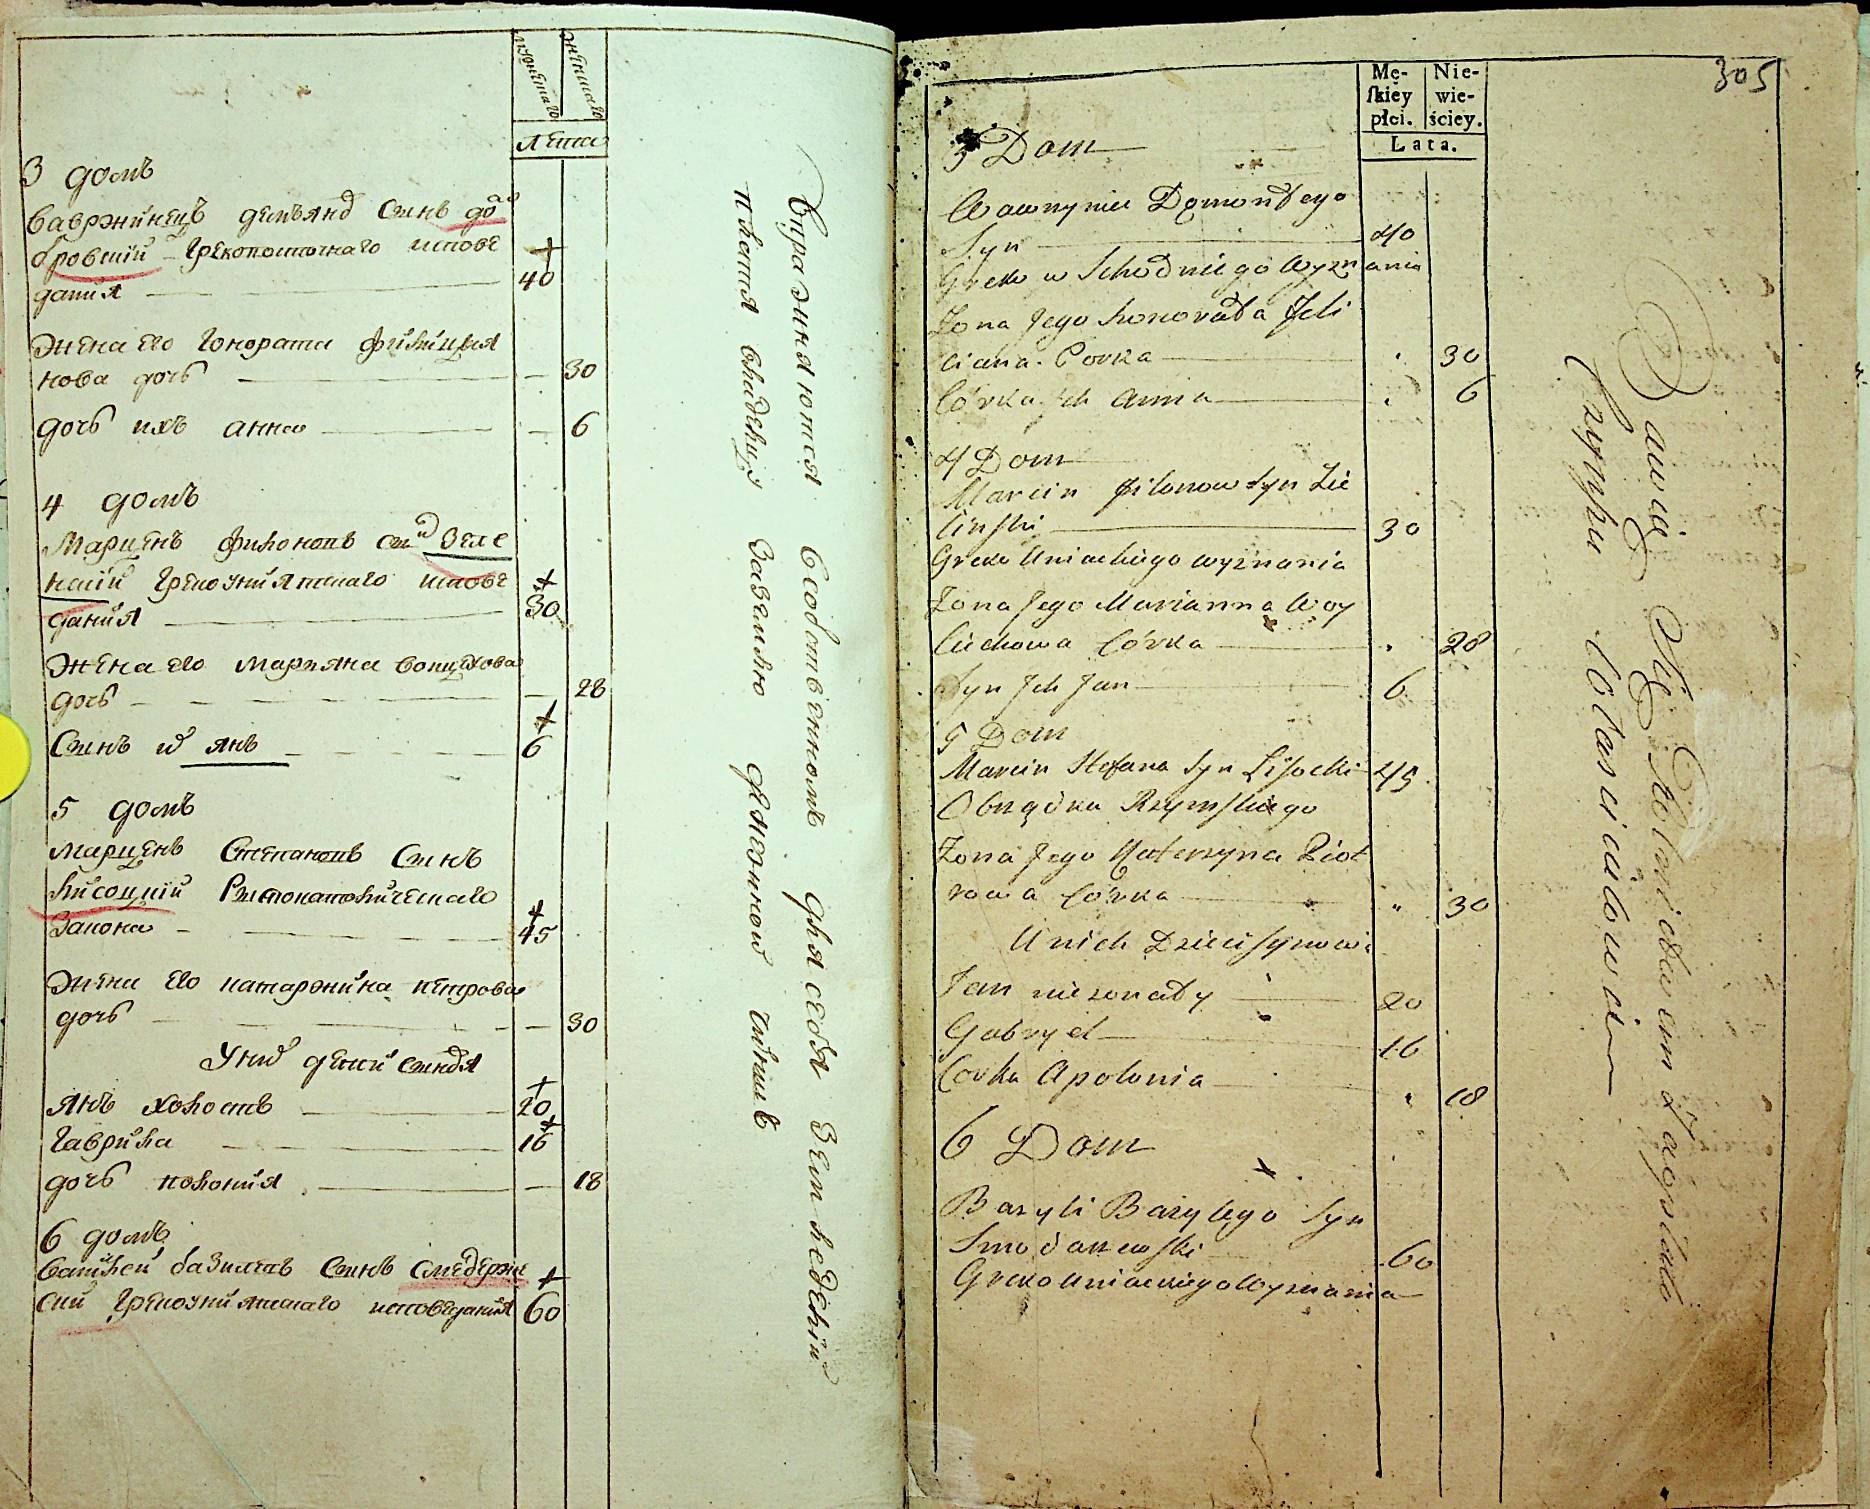 мужеска
женска
Лета
3 домъ
Гавржинецъ демъянъ Сынъ до
бровский Грекопосточнаго испове
дания 40
Жена его Гонората фелициа
нова дочь 30
дочь ихъ анна 6
4 домъ
Марценъ филоновъ сы Зеле
нский Грекоуниятскаго испове
дания 30
Жена его Марияна Войцехова
дочь 28
Сынъ и янъ 6
5 домъ
Марценъ Степановъ Сынъ
Лисоцкий Римокатолическаго
Закона 45
Жена его катаржина петрова
дочь 30
У них дети сыновя
Янъ холостъ 20
Гаврила 16
дочь полония 18
6 домъ
Василей базилевъ Сынъ
ский Грекоуниятскаго исповедания 60
въ Собственномъ для себя Земледелии
платя владельцу за землю чиншъ
305
Mę-
skiey
płci.
Nie-
wie-
ściey.
Lata.
Dom
Wawrzyniec
Syn 40
Greko w Schodniego Wyznania
Zona Jego Honorata Feli
ciana Corka 30
Córka Jch Anna 6
4 Dom
Marcin Filonow Syn Zie
linski 30
Greko Uniackiego wyznania
Zona Jego Marianna Woy
ciechowa Córka 28
Syn Jch Jan 6
5 Dom
Marcin Stefana Syn Lisocki 45
Obrządku Rzymskiego
Zona Jego Katerzyna Piot
rowa Córka 30
U nich Dzieci Synowi:
Jan niezonaty 20
Gabryel 16
Corka Apolonia 18
6 Dom
Bazyli Bazylego Syn
60
Greko Uniackiego Wyznania
Bawią Się Rolnictwem Zagrodo
Czynszu Właścicielowi